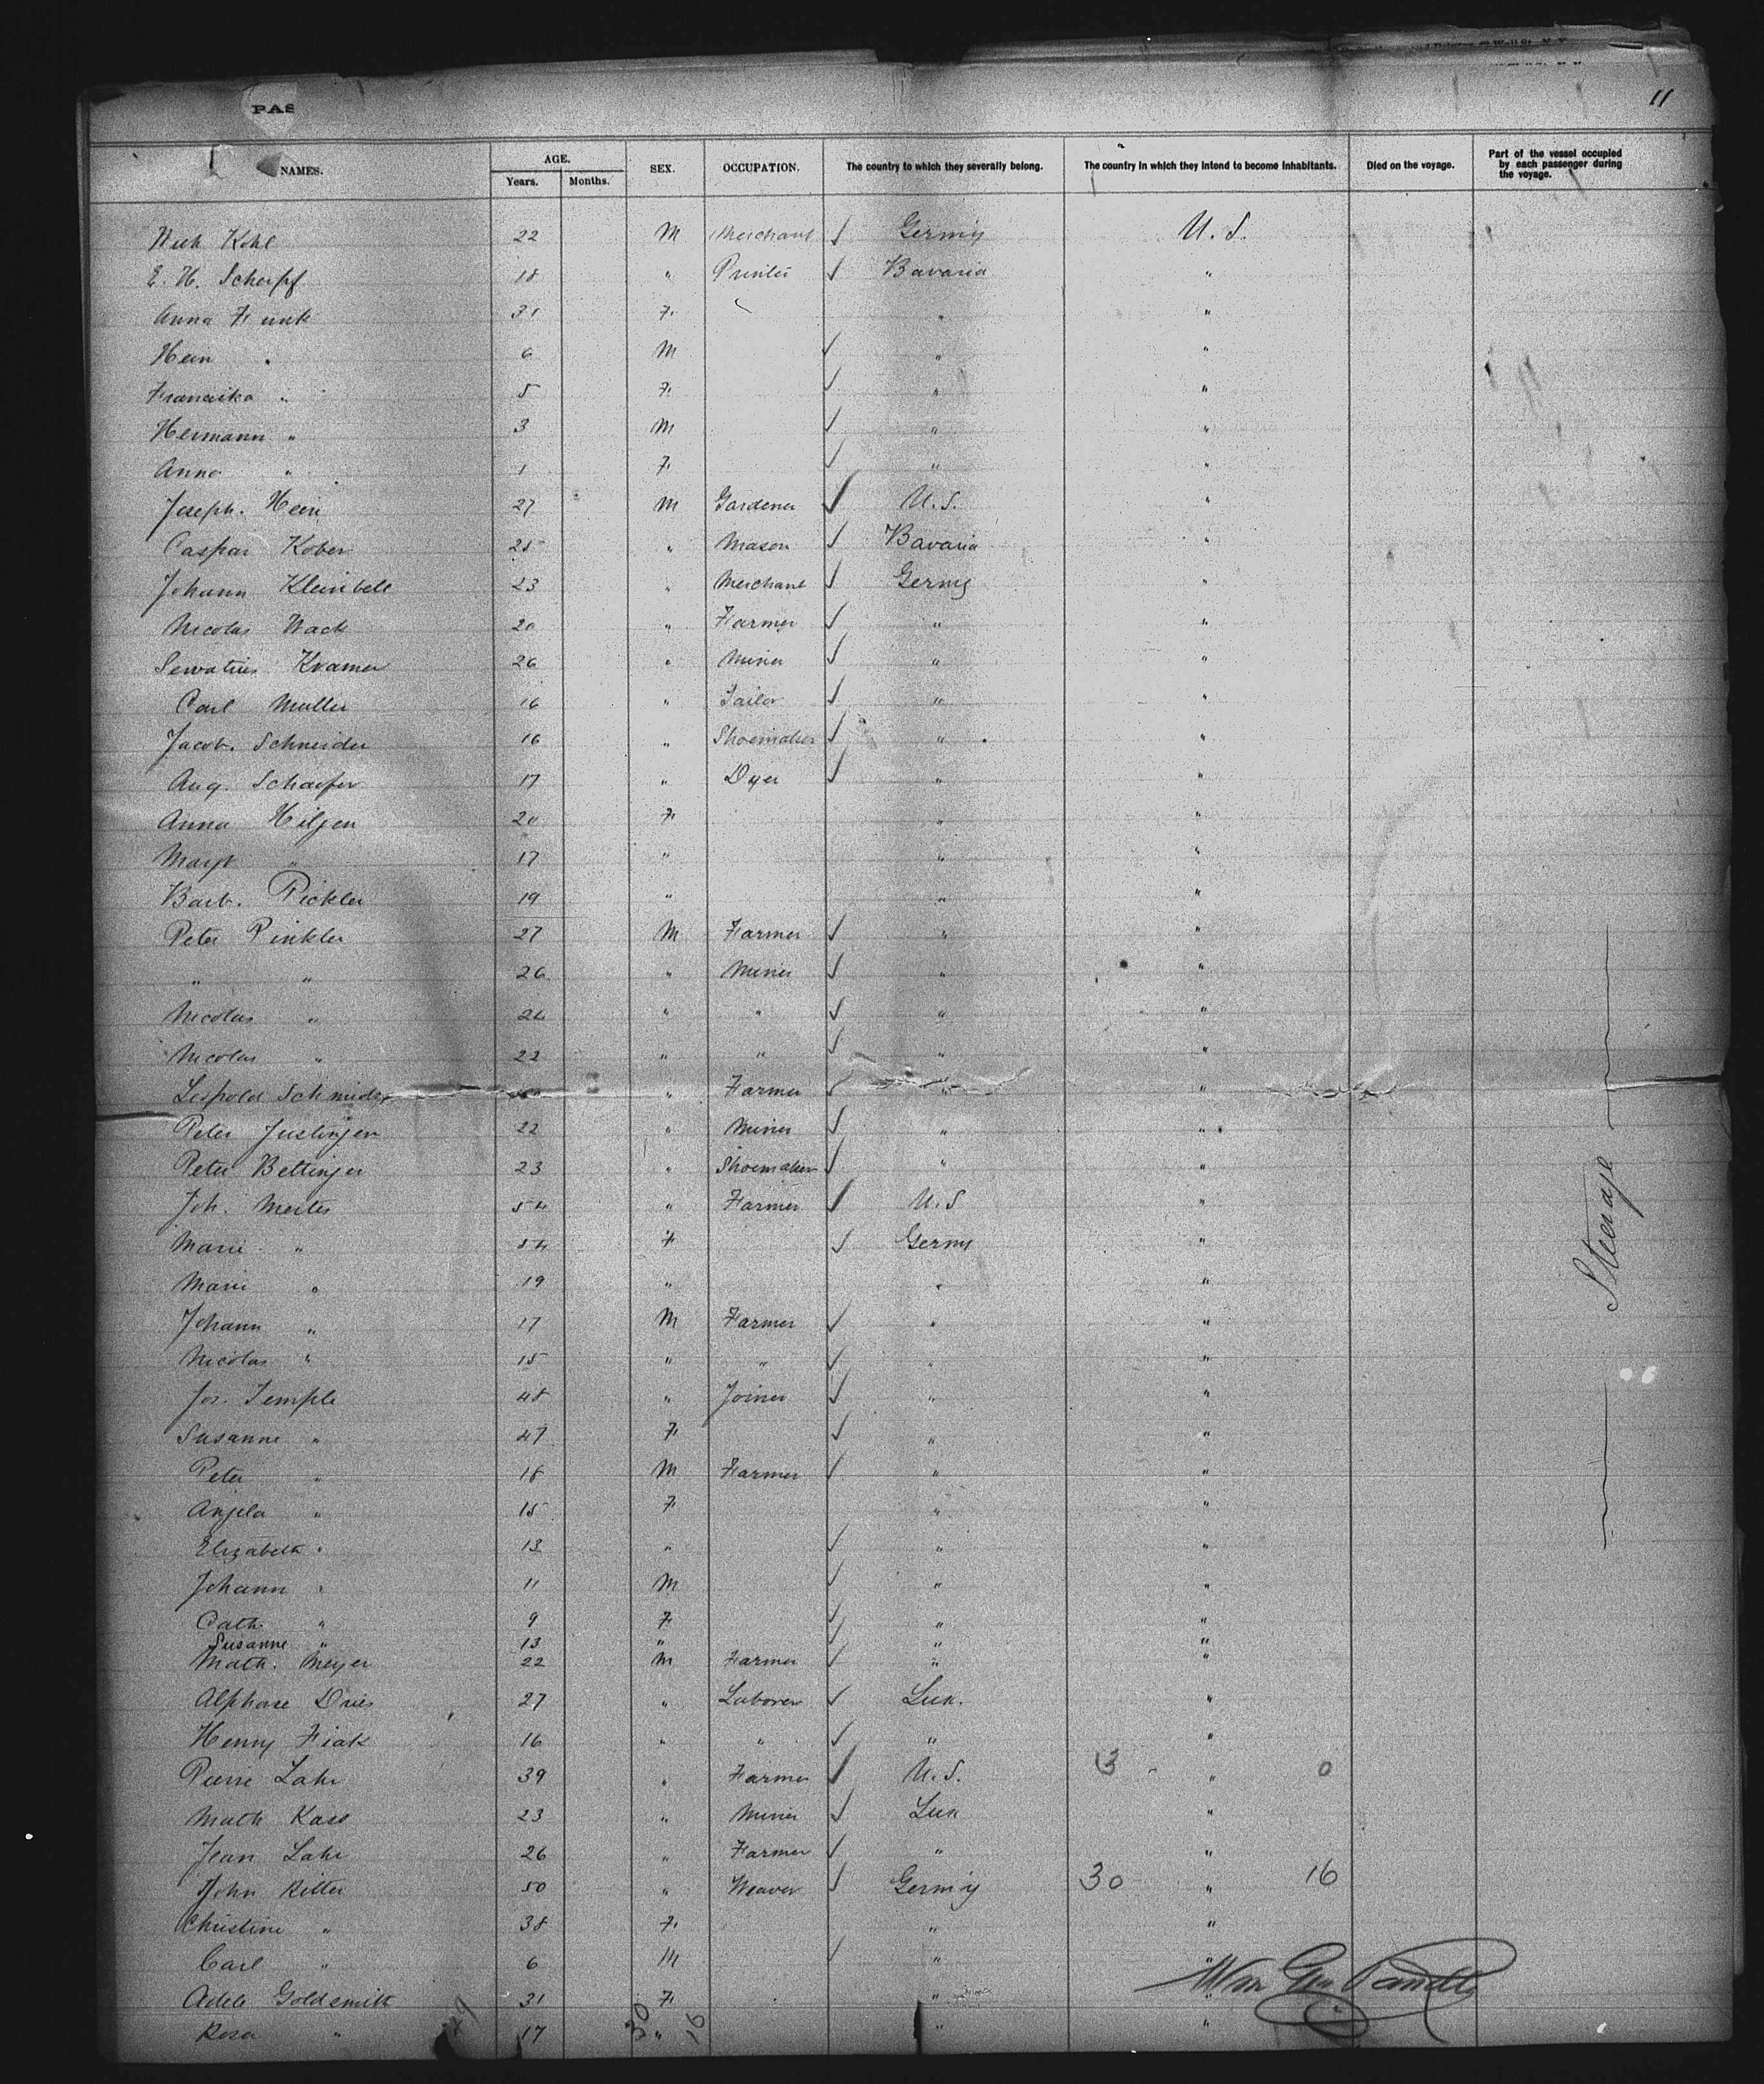 11
PAS
NAMES. AGE. Years. Months. SEX. OCCUPATION. The country to which they severally belong. The country in which they intend to become inhabitants. Died on the voyage. Part of the vessel occupied by each passenger during the voyage.
Kohl 22 M Merchant Germ'y U.S.
E. H. Scherpf 18 " Printer Bavaria "
Anna Funk 31 F. " "
Hein " 6 M " "
Franciska " 5 F. " "
Hermann " 3 M " "
Anna " 1 F. " "
Joseph. Hein 27 M Gardener U.S. "
Caspar Kober 25 " Mason Bavaria "
Johann Kleinbell 23 " Merchant Germy "
Nicolas Wack 20 " Farmer " "
Servatius Kramer 26 " Miner " "
Carl Muller 16 " Tailor " "
Jacob. Schneider 16 " Shoemaker " "
Aug. Schaefer 17 " Dyer " "
Anna Hilgen 20 F. " "
Margt " 17 " " "
Barb. Pickler 19 " " "
Peter Pinkler 27 M Farmer " "
" " 26 " Miner " "
Nicolas " 24 " " " "
Nicolas " 22 " " " "
Leopold Schmidt " Farmer " "
Peter Justinger 22 " Miner " "
Peter Bettinger 23 " Shoemaker " "
Joh. Mertes 54 " Farmer U.S "
Marie " 54 F Germy "
Marie " 19 " " "
Johann " 17 M Farmer " "
Nicolas " 15 " " " "
Jos. Temple 48 " Joiner " "
Susanne " 47 F. " "
Peter " 18 M Farmer " "
Angela " 15 F. " "
Elizabeth " 13 " " "
Johann " 11 M " "
Cath. " 9 F. " "
Susanne " 13 " " "
Math. Meyer 22 M Farmer " "
Alphonse Dries 27 " Laborer Lux. "
Henry 16 " " " "
Pierre Lahr 39 " Farmer U.S. 3 " 0
Math Kass 23 " Miner Lux "
Jean Lahr 26 " Farmer " "
John Ritter 50 " Weaver Germ'y 30 " 16
Christine " 38 F. " "
Carl " 6 M " "
Adele Goldsmith 31 F. " "
Rosa " 17 " " "
30 16
Steerage